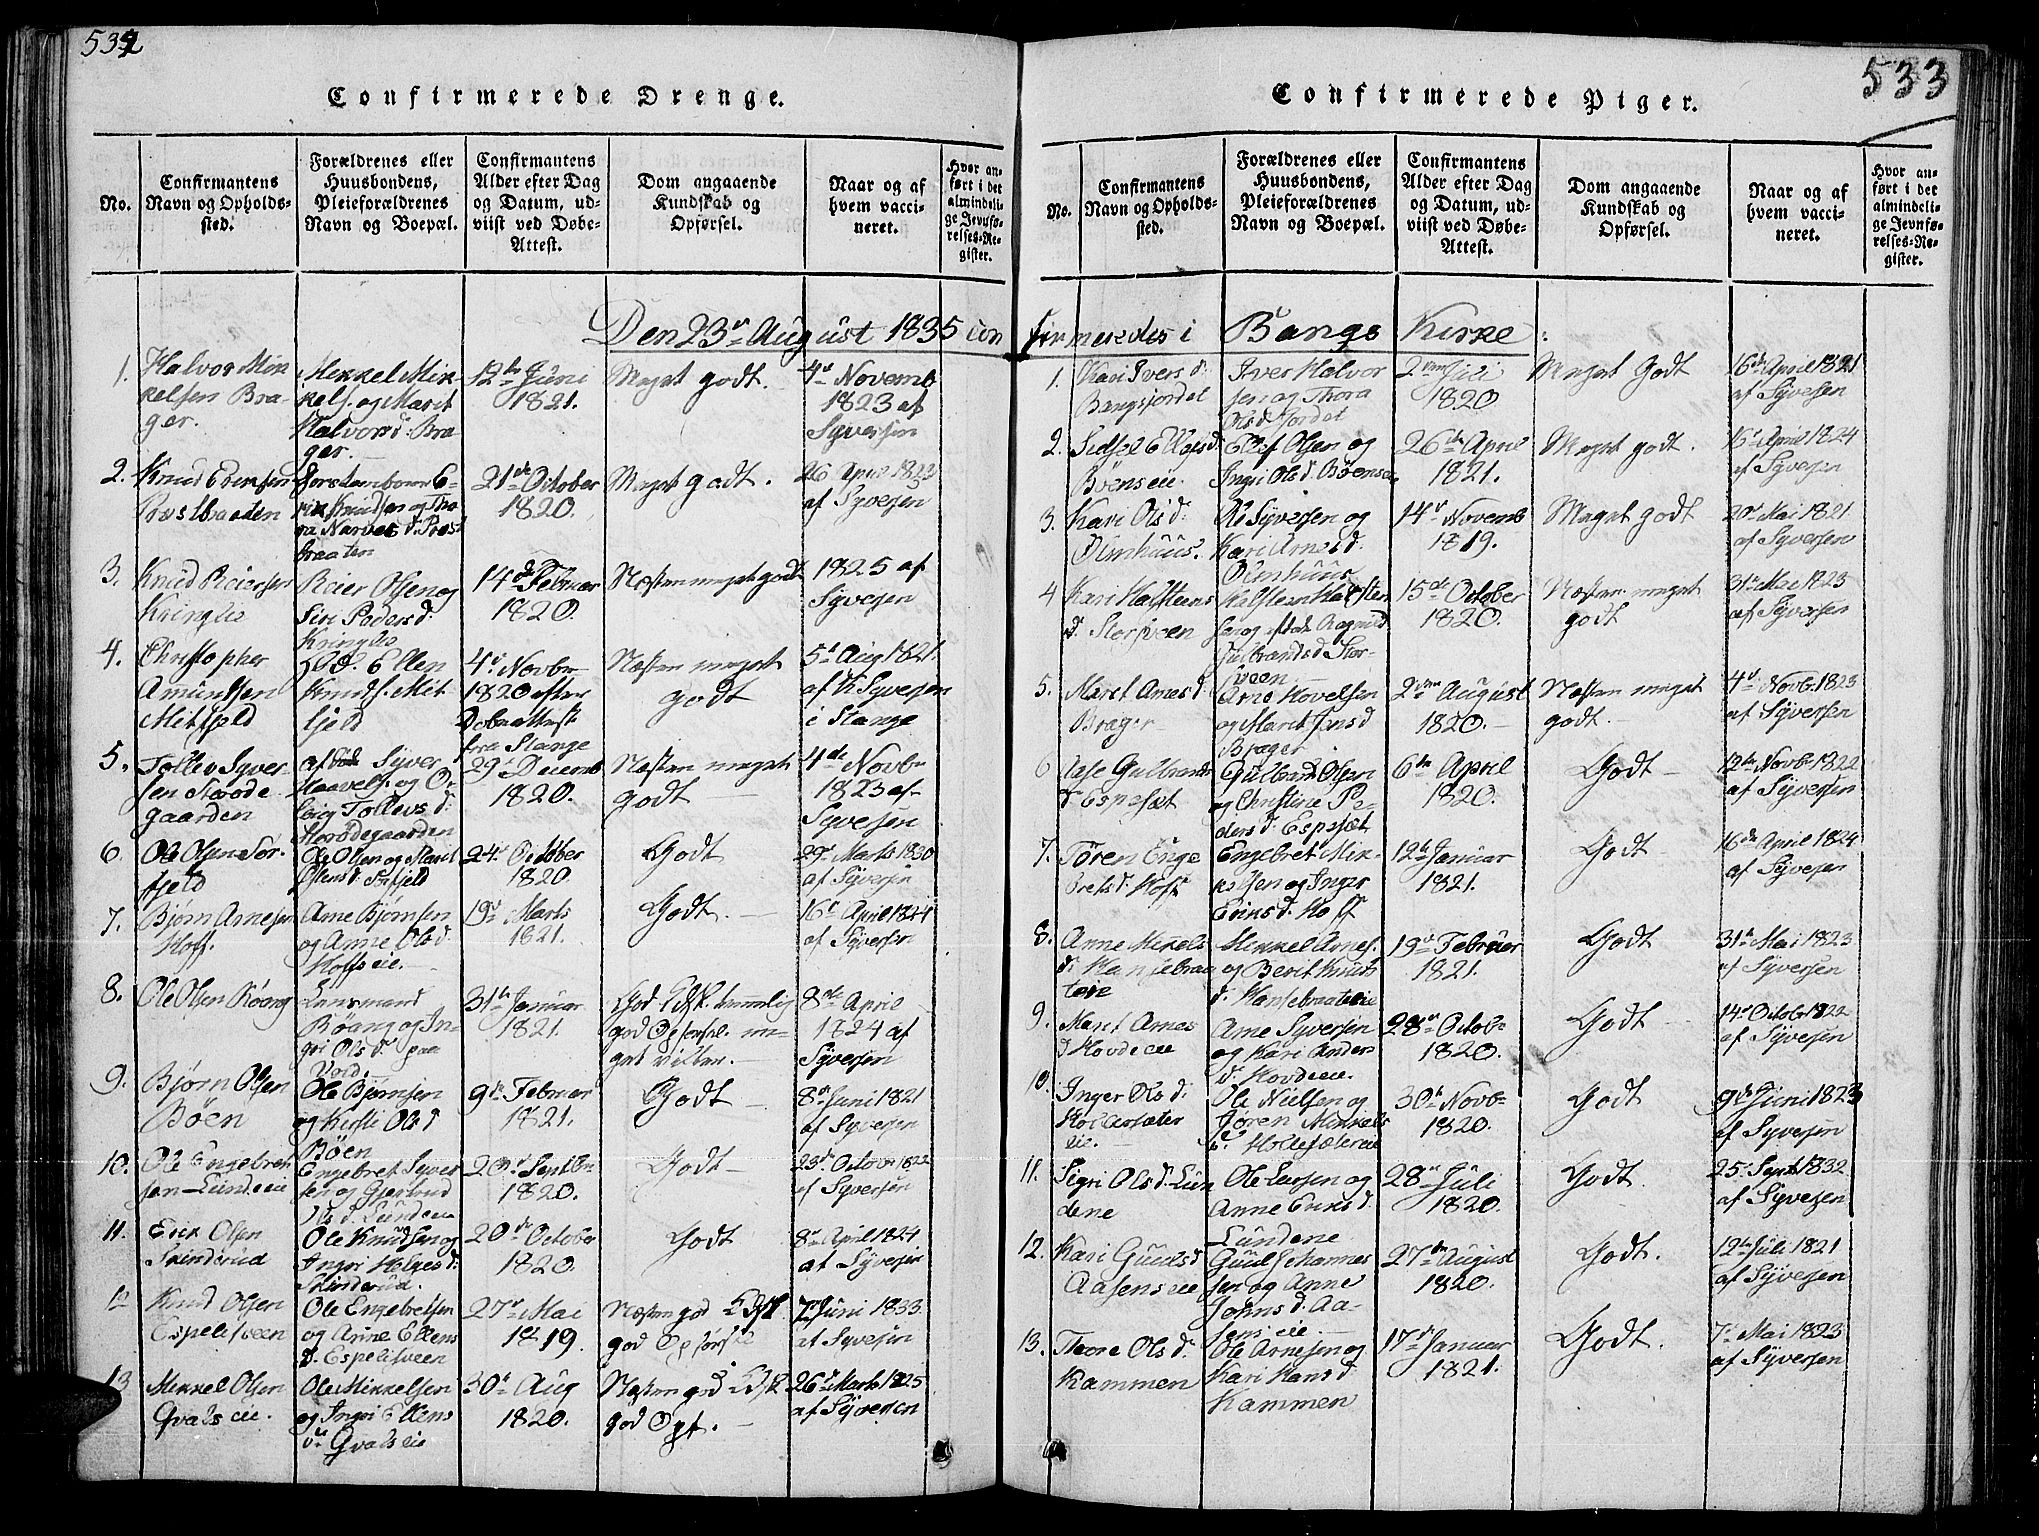 532
Confirmerede Drenge.
No.
Confirmantens
Navn og Opholds-
sted.
Forældrenes eller
Huusbondens,
Pleieforældrenes
Navn og Boepæl.
Confirmantens
Alder efter Dag
og Datum, ud-
viist ved Døbe-
Attest.
Dom angaaende
Kundskab og
Opførsel.
Naar og af
hvem vacci-
neret.
Hvor an-
ført i det
almindeli-
ge Jevnfø-
relses-Re-
gister.
Den 23de August 1835 con
1.
Halvor Mik
kelsen Bra-
ger.
Mikkel Mik-
kels. og Marit
Halvorsd. Bra
ger.
12te Juni
1821.
Meget godt.
4de Novemb
1823 af
Syversen
2.
Knud Eriksen
Præstbraaten
Forstanbour E-
rik Knudsen og Tho
ra Narves d. Præst
braaten
21de October
1820.
Meget godt.
26 April 1823
af Syversen
3.
Knud Reiersen
Kringlie
Reier Olsen og
Siri Peders d.
Kringlie
14de Februar
1820.
Næsten meget godt
1825 af
Syversen
4.
Christopher
Amundsen
Mitfjeld
Ellen
Knuds. Mit
fjeld
4de Novbr
1820 efter
Døbeattest
fra Stange
Næsten meget
godt
5te Aug 1821.
af K Syversen
i Stange
5.
Tollev Syver-
sen Strøde
gaarden
Syver
Haavels. og O-
leig Tollevs d.
Strødegaarden
29de Decemb
1820.
Næsten meget
godt
4de Novbr
1823 af
Syversen
6.
Ole Olsen Sør-
fjeld
Ole Olsen og Marit
Olsens d. Sørfjeld
24de October
1820.
Godt
29de Marts 1830
af Syversen
7.
Bjørn Arnesen
Hoff.
Arne Bjørnsen
og Anne Ols d.
Hoffs eie.
19de Marts
1821.
Godt.
16de April 1824
af Syversen
8.
Ole Olsen Røang
Lensmand
Røang og In-
gri Ols d. paa
Vold.
31te Januar
1821.
God Kdsk. temmelig
god Opførsel me-
get vilter.
8de April
1824 af
Syversen
9.
Bjørn Olsen
Bøen
Ole Bjørnsen
og Kirsti Ols d
Bøen
9de Februar
1821.
Godt
8de Juni 1821
af Syversen
10.
Ole Engebret
sen Lundeeie
Engebret Syver
sen og Gjertrud
Ols d. Lundeeie
20de Septbr
1820.
Godt
23de Octobr 1822
af Syversen
11.
Erik Olsen
Skinderud
Ole Knudsen og
Ingri Helges d.
Skinderud.
20de October
1820.
Godt
8de April 1824
af Syversen
12
Knud Olsen
Espelisveen
Ole Engebretsen
og Anne Ellens
d. Espelisveen
27de Mai
1819.
Næsten god Kdsk.
god Opførsel
7de Juni 1833.
af Syversen
13
Mikkel Olsen
Qvals eie.
Ole Mikkelsen
og Ingri Ellens
d. Qvals eie
30te Aug
1820.
Næsten god Kdsk
god Opf.
26de Marts 1825
af Syversen
533
Confirmerede Piger.
No.
Confirmantens
Navn og Opholds-
sted.
Forældrenes eller
Huusbondens,
Pleieforældrenes
Navn og Boepæl.
Confirmantens
Alder efter Dag
og Datum, ud-
viist ved Døbe-
Attest.
Dom angaaende
Kundskab og
Opførsel.
Naar og af
hvem vacci-
neret.
Hvor an-
ført i det
almindeli-
ge Jevnfø-
relses-Re-
gister.
firmeredes i Bangs Kirke:
1.
Kari Ivers d.
Bangsjordet
Iver Halvor
sen og Thora
Ols d. Jordet
2den Juli
1820
Meget Godt
16de April 1821
af Syversen
2.
Sidsel Ellefs d.
Bøens eie.
Ellef Olsen og
Ingri Ols d. Bøenseie
26de April
1821.
Meget godt.
16de April 1824
af Syversen
3.
Kari Ols d.
Olmhuus.
Ole Syversen og
Kari Arnes d.
Olmhuus
14de Novemb
1819.
Meget godt
20de Mai 1821
af Syversen
4
Kari Halsteens
d. Storsveen
Halsteen Halsten
sen og Ragnild
Gulbrands d. Stor-
sveen
15de October
1820.
Næsten meget
godt
31te Mai 1823
af Syversen
5.
Marit Arnes d.
Brager
Arne Hovelsen
og Marit Jens d
Brager
2den August
1820.
Næsten meget
godt.
4de Novb. 1823
af Syversen
6
Aase Gulbrands
d. Espesæt
Gulbrand Olsen
og Christine Pe-
ders d. Espesæt
6te April
1820.
Godt
12te Novbr 1822
af Syversen
7.
Jøren Enge
brets d. Hoff
Engebret Mik-
kelsen og Inger
Eriks d. Hoff
12te Januar
1821.
Godt
16de April 1824
af Syversen
8.
Anne Mikkels
d. Hansebraa
teie
Mikkel Arnes.
og Berit Knuds
d. Hansebraateeie
19de Februar
1821.
Godt
31te Mai 1823
af Syversen
9.
Marit Arnes
d Hovdeeie
Arne Syversen
og Kari Anders
d. Hovdeeie.
28de Octob
1820.
Godt
14de Octob 1822
af Syversen
10.
Inger Ols d.
Holesæter
eie.
Ole Nielsen og
Jøren Mikkels
d. Holesætereie
30te Novb
1820.
Godt
9de Juni 1823
af Syversen
11.
Sigri Ols d. Lun
dene
Ole Larsen og
Anne Eriks d.
Lundene
28de Juli
1820.
Godt.
25de Sept 1832
af Syversen
12.
Kari Guuls d
Aasens eie
Guul Johannes
sen og Anne
Johns d. Aa-
sens eie.
27de August
1820.
Godt.
12te Juli 1821
af Syversen
13.
Thore Ols d.
Kammen
Ole Arnesen og
Kari Hans d
Kammen
17de Januar
1821.
Godt.
7de Mai 1823
af Syversen